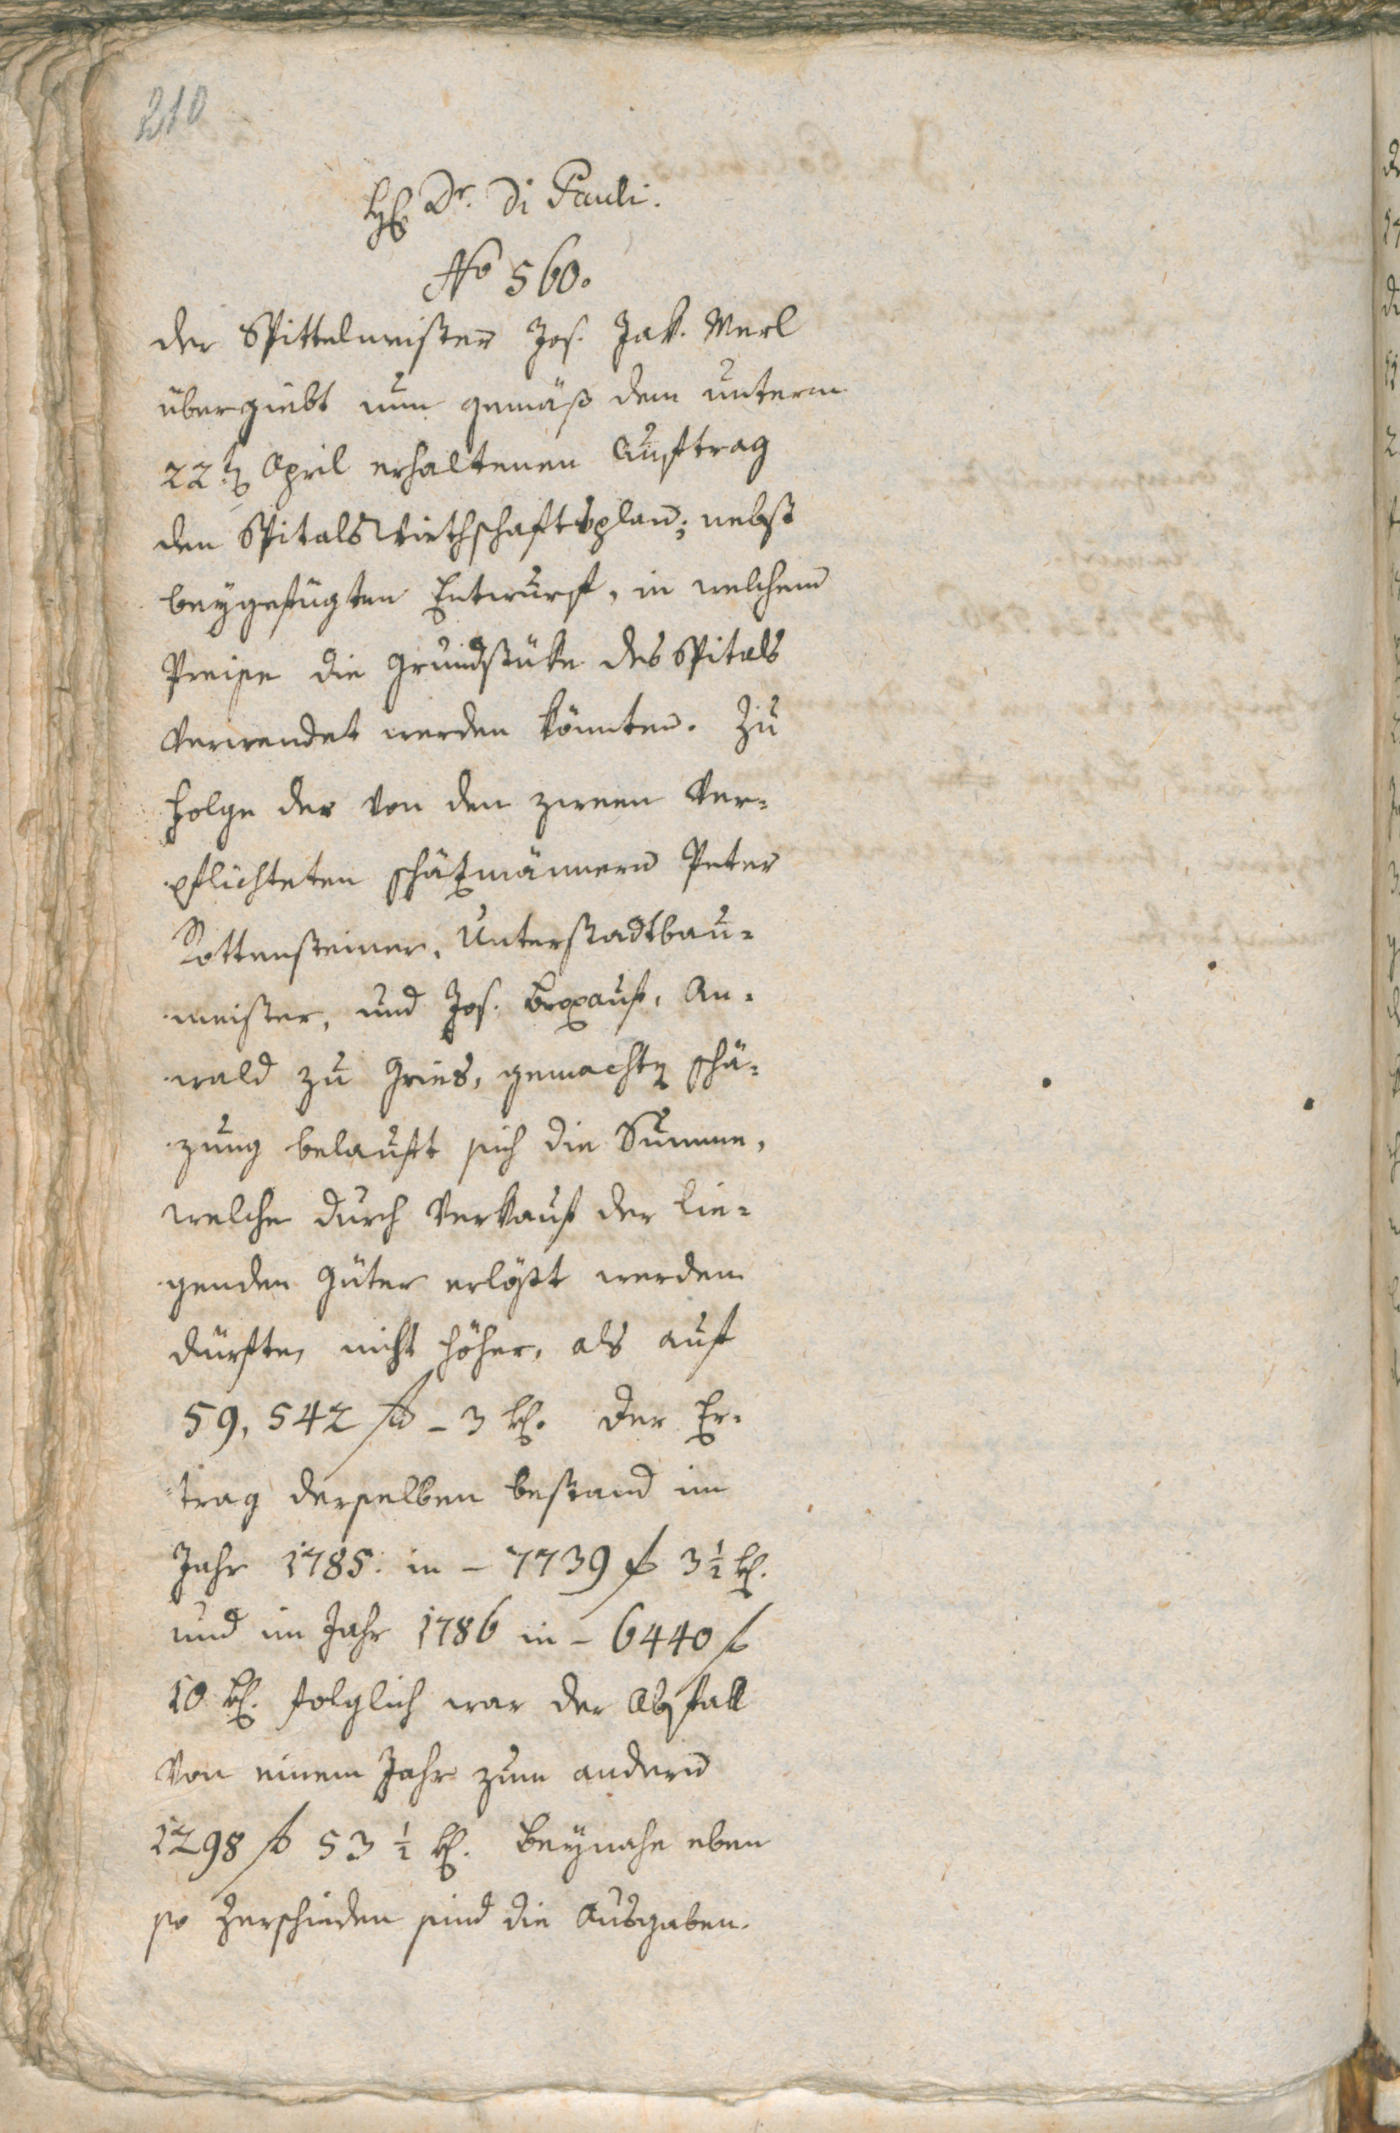 210
H: Dr. Di Pauli.
No 560.
der Spittelmeister Jos. Jak. Merl
übergiebt nun gemäß dem unterm
22ten April erhaltenen Auftrag
den SpitalsWirthschaftsplan; nebst
beygefügten Entwurf, in welchem
Preise die Grundstüke des Spitals
verwendet werden könnten. Zu
folge der von den zween Ver-
pflichteten schäzmännern Peter
Rottensteiner, Unterstadtbau-
meister, und Jos. An-
wald zu Gries, gemachten schä-
zung belauft sich die Summe,
welche durch Verkauf der lie-
genden Güter erlößt werden
dürfte, nicht höher, als auf
59,542 f - 3 kr. der Er-
trag derselben bestand im
Jahr 1785. in - 7739 f 3 ½ kr.
und im Jahr 1786 in - 6440 f
10 kr. folglich war der Abfall
von einem Jahr zum andern
1298 f 53 ½ kr. Beynahe eben
so Verschieden sind die Ausgaben.